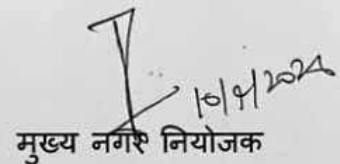 10/9/2024
मुख्य नगर नियोजक